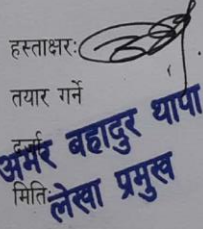 हस्ताक्षरः
तयार गर्ने
अमर बहादुर थापा
मितिः लेखा प्रमुख